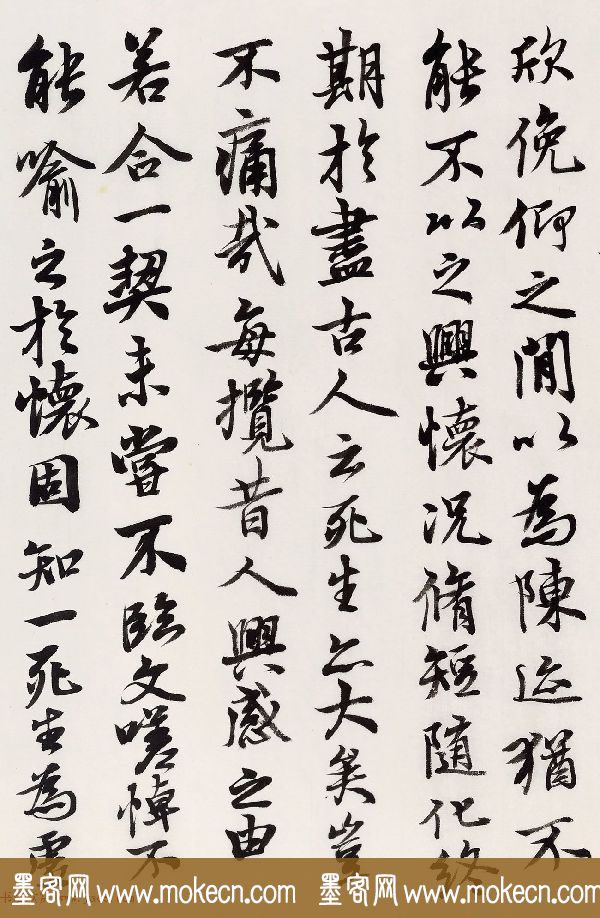 欣俛仰之閒以為陳迹猶不
能不以之興懷况脩短隨化終
期於盡古人云死生亦大矣豈
不痛哉每攬昔人興感之由
若合一契未嘗不臨文嗟悼不
能喻之於懷固知一死生為虛
墨客网 www.mokecn.com 墨客网 www.mokecn.com